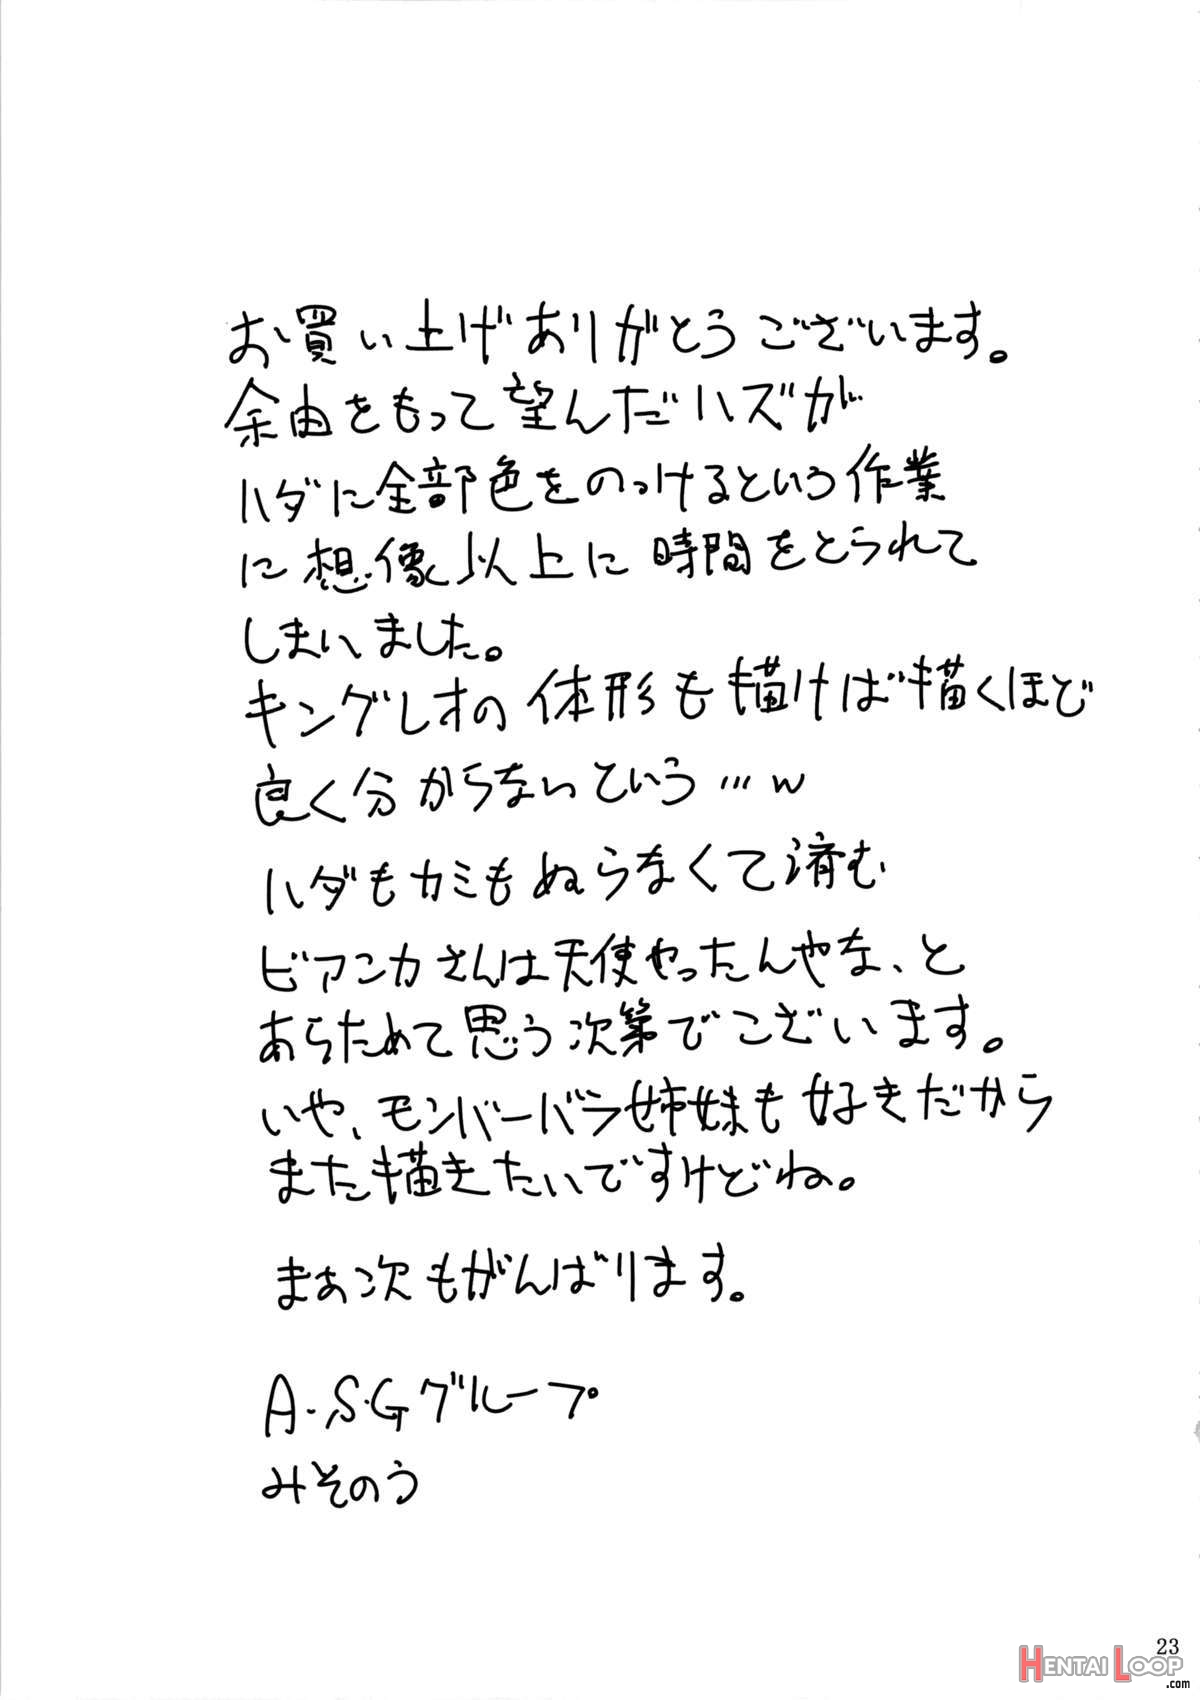 お買い上げありがとうございます。
余由をもって望んだハズが
ハダに全部色をのっけるという作業
に想像以上に時間をとられて
しまいました。
キングレオの体形も描けば描くほど
良く分からないという…w
ハダもカミもぬらなくて済む
ビアンカさんは天使やったんやな、と
あらためて思う次第でございます。
いや、モンバーバラ姉妹も好きだから
また描きたいですけどね。
まぁ次もがんばります。
A・S・Gグループ
みそのう
23
HENTAI LOOP
.com